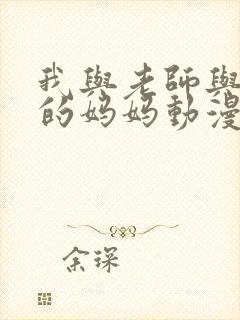 我與老師與
的妈妈動漫
余琛